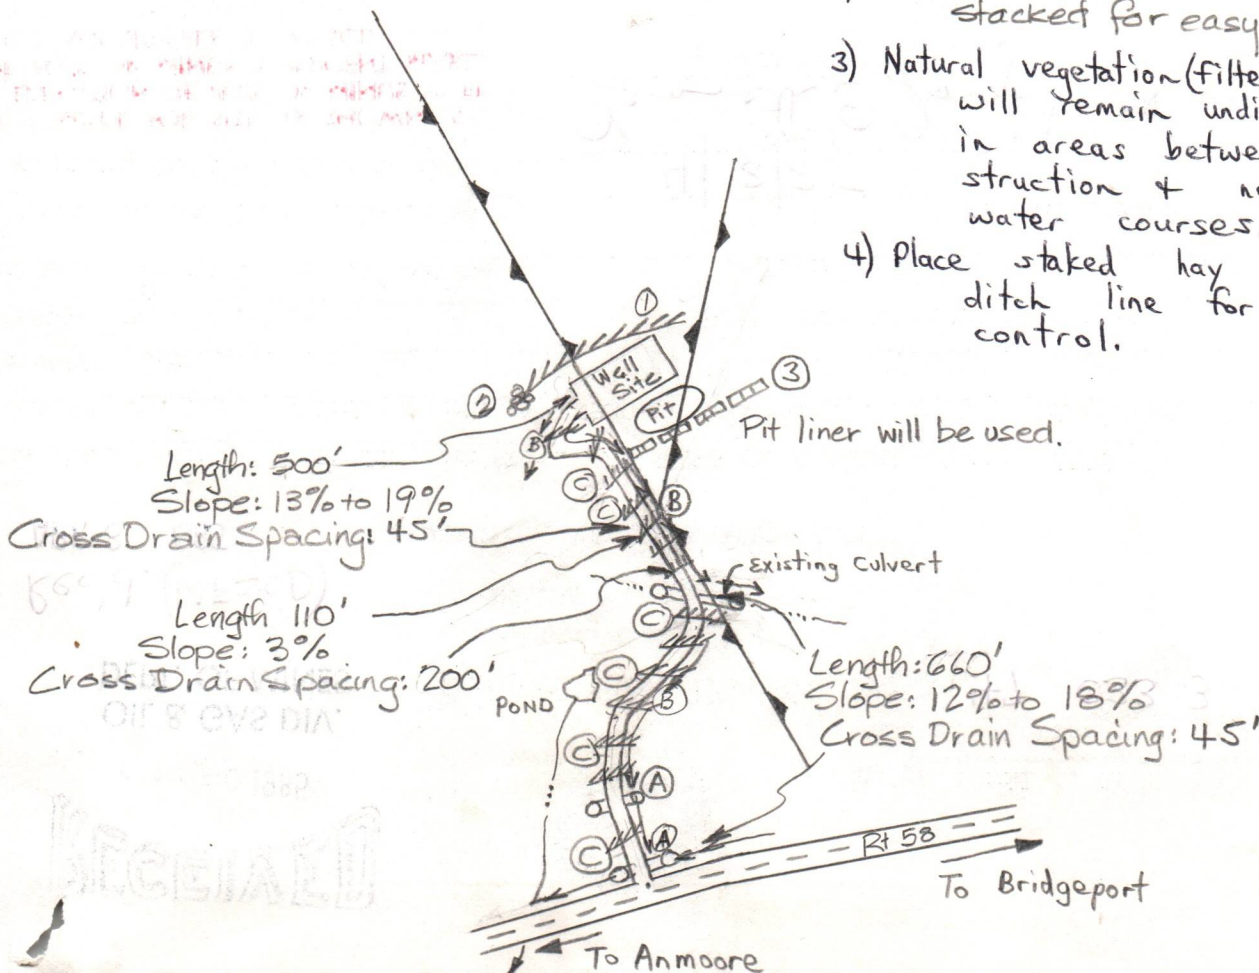 stacked for easy
3) Natural vegetation (filte
will remain undi
in areas betwe
struction + n
water courses
4) Place staked hay
ditch line for
control.
①
Well
Site
②
③
Pit
Pit liner will be used.
Ⓑ
Length: 500'
Slope: 13% to 19%
Cross Drain Spacing: 45'
Ⓒ
Ⓒ
Ⓑ
Existing Culvert
Length 110'
Slope: 3%
Cross Drain Spacing: 200'
Ⓒ
Ⓒ
POND
Ⓑ
Length: 660'
Slope: 12% to 18%
Cross Drain Spacing: 45'
Ⓒ
Ⓐ
Ⓐ
Ⓒ
Rt 58
To Bridgeport
To Anmoore
OIL & GAS DIV.
RECEIVED